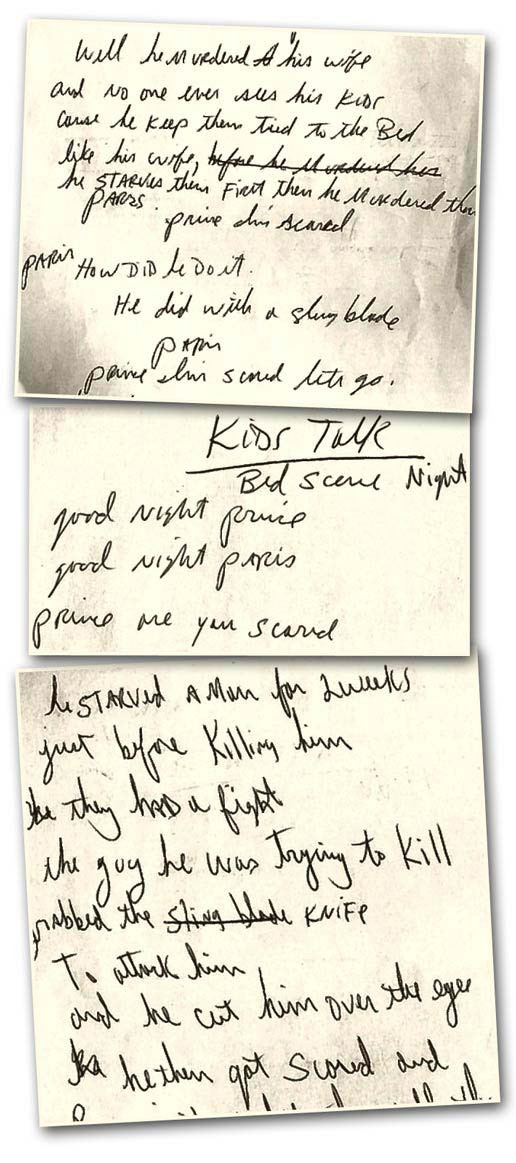 Well he Murdered his wife
and No one ever sees his KiDs
cause he Keep them tied to the Bed
like his wife, before he Murdered her
he STARVES them First then he Murdered them
PARIS
prince I'm scared
PARIS How DiD he Do it.
He did with a sling blade
PARIS
prince I'm scared lets go.
KiDs Talk
Bed Scene Night
good Night prince
good Night PARIS
prince are you scared
he STARVED A Man for 2 weeks
just before Killing him
they had a fight
the guy he was Trying to Kill
grabbed the sling blade KNiFe
To attack him
and he cut him over the eye
he then got scared and